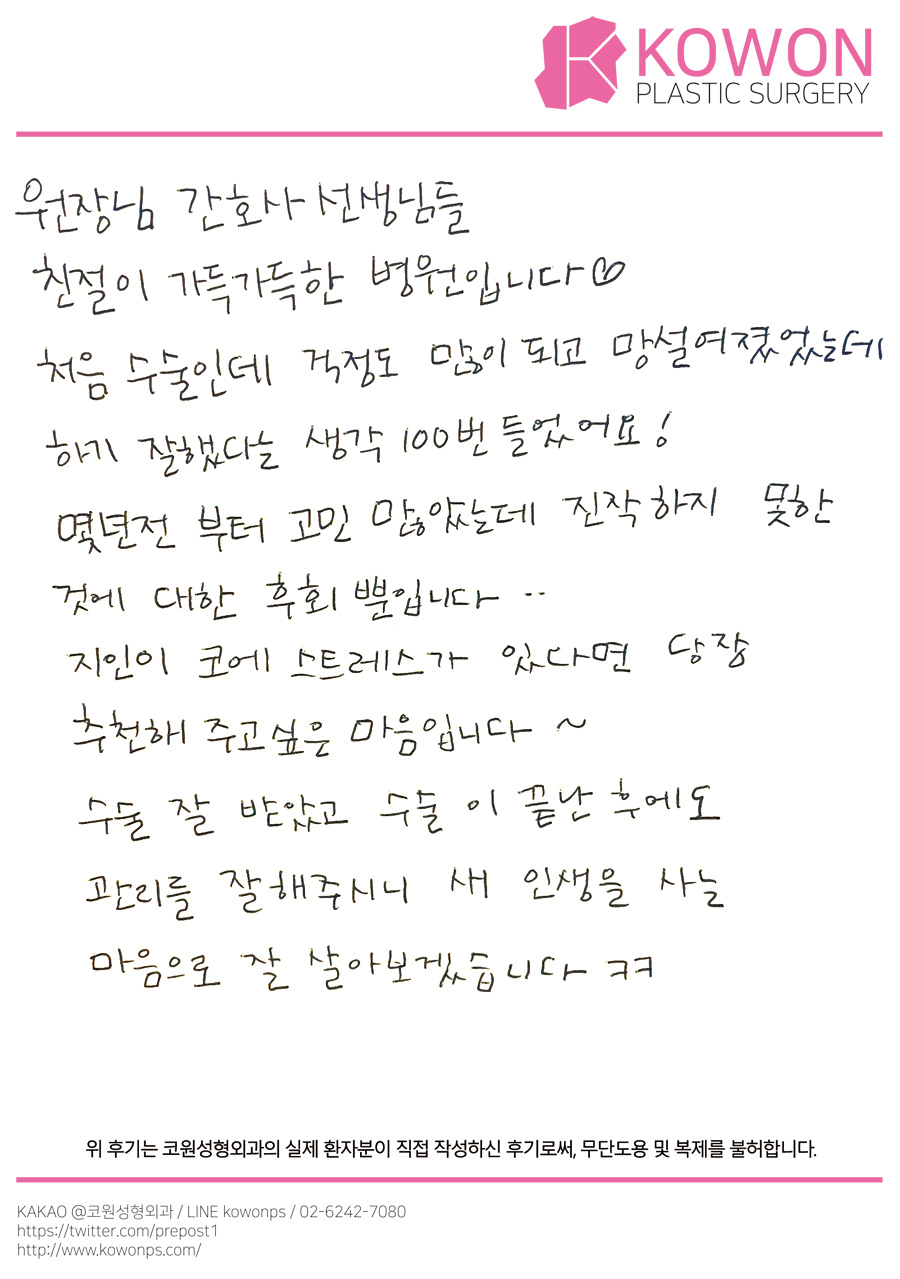 KOWON
PLASTIC SURGERY
원장님 간호사 선생님들
친절이 가득가득한 병원입니다♡
처음 수술인데 걱정도 많이 되고 망설여졌었는데
하기 잘했다는 생각 100번 들었어요!
몇년전 부터 고민 많았는데 진작 하지 못한
것에 대한 후회 뿐입니다 ..
지인이 코에 스트레스가 있다면 당장
추천해 주고싶은 마음입니다 ~
수술 잘 받았고 수술 이 끝난 후에도
관리를 잘해주시니 새 인생을 사는
마음으로 잘 살아보겠습니다 ㅋㅋ
위 후기는 코원성형외과의 실제 환자분이 직접 작성하신 후기로써, 무단도용 및 복제를 불허합니다.
KAKAO @코원성형외과 / LINE kowonps / 02-6242-7080
https://twitter.com/prepost1
http://www.kowonps.com/